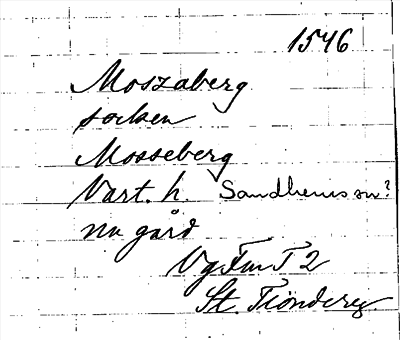 1546
Moszaberg
socken
Mosseberg
Vart. h. Sandhems sn?
nu gård
Vg Fm T 2
St. Tiondereg.